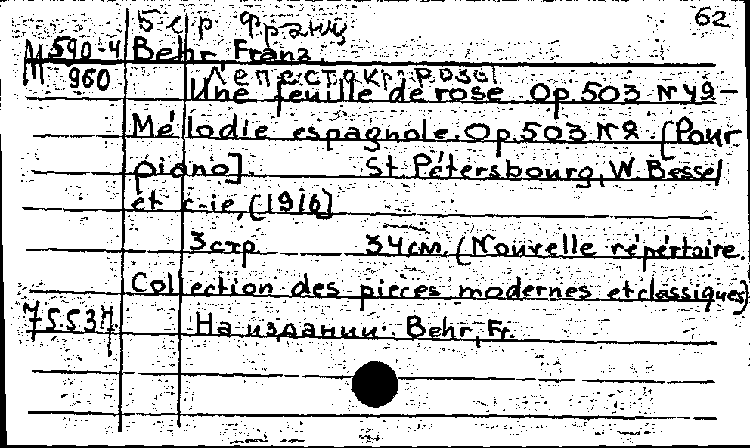 62
Бер Франц
М 590-4 Behr Franz.
960 Лепесток розы
Une feuille de rose Op.503 №49-
Mélodie espagnole. Op.503 №2. [Pour
piano]. St Pétersbourg, W. Bessel
et c-ie, [1916]
3 стр 34 см. (Nouvelle répértoire.
Collection des pieces modernes et classiques)
На издании: Behr, Fr.